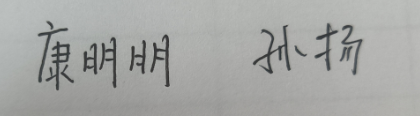 康明明 孙扬